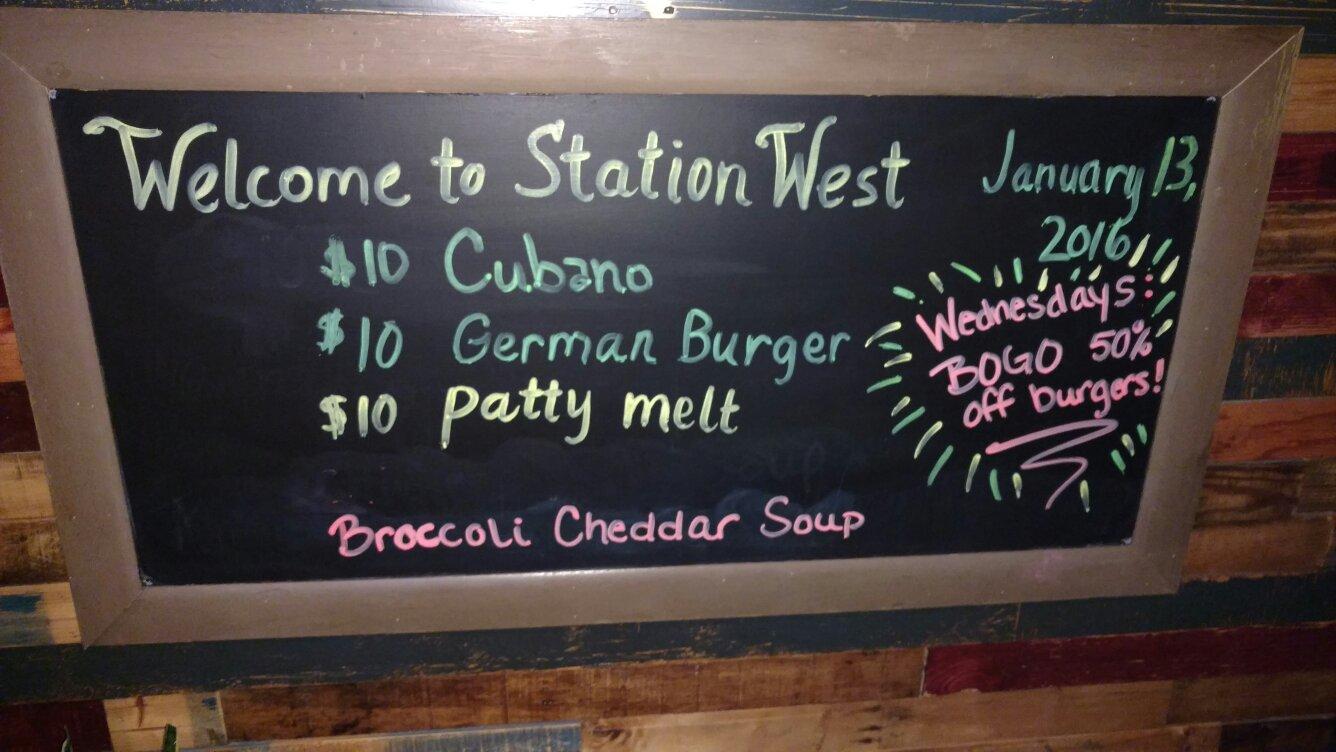 Welcome to Station West
January 13,
2016
$10 Cubano
$10 German Burger
$10 patty melt
Wednesdays:
BOGO 50%
off burgers!
Broccoli Cheddar Soup